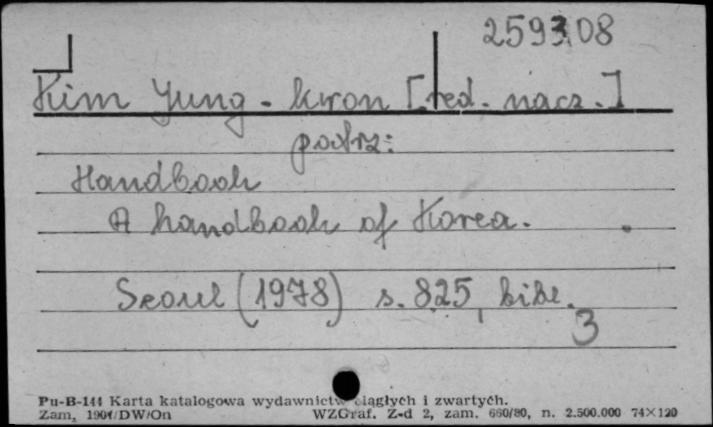 259308
Kim Yung-kwon [red. nacz.]
patrz:
Handbook
A handbook of Korea.
Seoul (1978) s. 825, bibl.
3
Pu-B-144 Karta katalogowa wydawnictw ciągłych i zwartych.
Zam. 1901/DW/On WZGraf. Z-d 2, zam. 660/80, n. 2.500.000 74×120